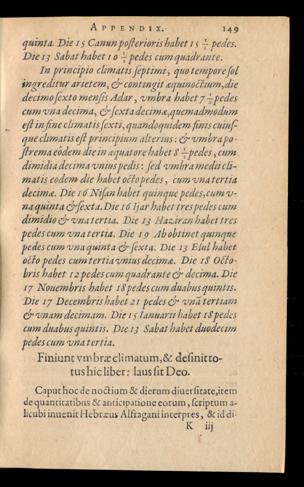 APPENDIX. 149
quinta. Die 15 Canun posterioris habet 15 pedes.
Die 13 Sabat habet 10 pedes cum quadrante.
In principio climatis septimi, quo tempore sol
ingreditur arietem, & contingit æquinoctium, die
decimo sexto mensis Adar, vmbra habet 7 pedes
cum vna decima, & sexta decimæ, quemadmodum
est in fine climatis sexti, quandoquidem finis cuius-
que climatis est principium alterius: & vmbra po-
strema eodem die in æquatore habet 8 pedes, cum
dimidia decima vnius pedis: sed vmbra medii cli-
matis eodem die habet octo pedes, cum vna tertia
decimæ. Die 16 Nisan habet quinque pedes, cum v-
na quinta & sexta. Die 16 Ijar habet tres pedes cum
dimidio & vna tertia. Die 13 Haziran habet tres
pedes cum vna tertia. Die 19 Ab obtinet quinque
pedes cum vna quinta & sexta. Die 13 Elul habet
octo pedes cum tertia vnius decimæ. Die 18 Octo-
bris habet 12 pedes cum quadrante & decima. Die
17 Nouembris habet 18 pedes cum duabus quintis.
Die 17 Decembris habet 21 pedes & vnã tertiam
& vnam decimam. Die 15 Ianuarii habet 18 pedes
cum duabus quintis. Die 13 Sabat habet duodecim
pedes cum vna tertia.
Finiunt vmbræ climatum, & desinit to-
tus hic liber: laus sit Deo.
Caput hoc de noctium & dierum diuersitate, item
de quantitatibus & anticipatione eorum, scriptum a-
licubi inuenit Hebræus Alfragani interpres, & id di-
K iij